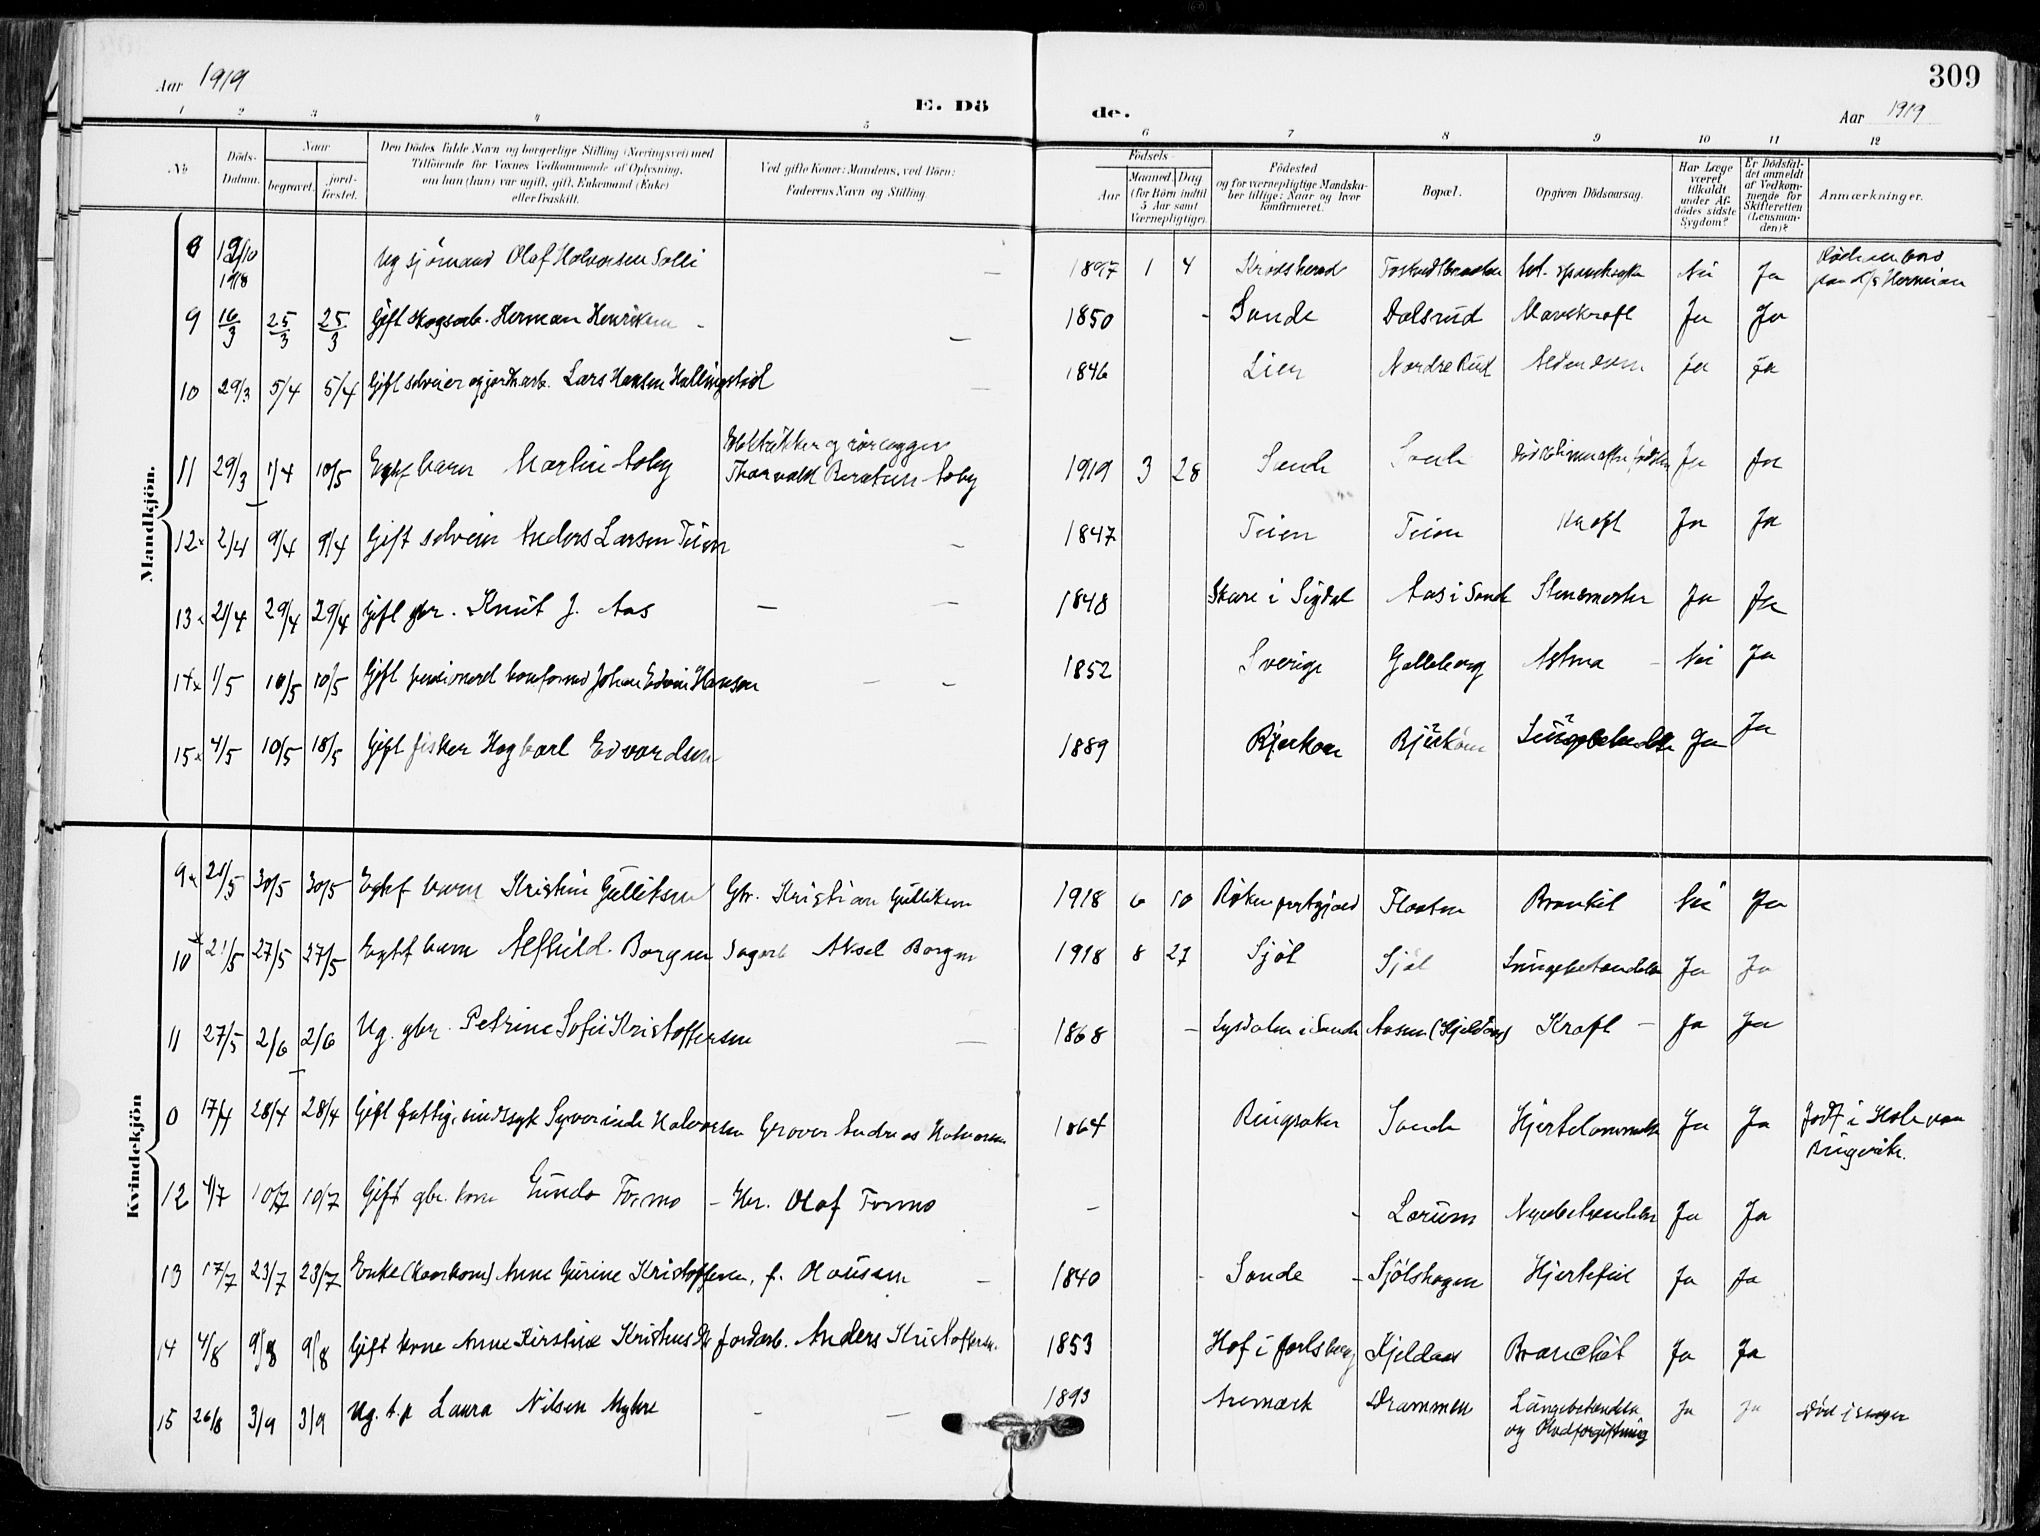 Aar 1919
E. Dö
de.
309
Aar 1919
1 2 3 4 5 6 7 8 9 10 11 12
No
Döds-Datum.
Naar
begravet.
jord-fæstet.
Den Dödes fulde Navn og borgerlige Stilling (Næringsvei) med
Tilföiende for Voxnes Vedkommende af Oplysning,
om han (hun) var ugift, gift, Enkemand (Enke)
eller fraskilt.
Ved gifte Koner: Mandens, ved Börn:
Faderens Navn og Stilling.
Födsels-
Aar
Maaned Dag
(for Börn indtil
5 Aar samt
Værnepligtige).
Födested
og for værnepligtige Mandska-
ber tillige: Naar og hvor
konfirmeret.
Bopæl.
Opgiven Dödsaarsag.
Har Læge
været
tilkaldt
under Af-
dödes sidste
Sygdom?
Er Dödsfal-
det anmeldt
af Vedkom-
mende for
Skifteretten
(Lensman-
den)?
Anmærkninger.
Mandkjön.
8 1918 Ug sjömand Olaf Halvorsen Solli – 1897 1 4 Krödsherad Nei Ja
9 16/3 25/3 25/3 Gift skogsarb. Herman Henriksen – 1850 Sande Dalsrud Mavekraft Ja Ja
10 29/3 5/4 5/4 Gift selveier og jordarb. Lars Hansen Hallingstad 1846 Lien Nordre Rud Alderdom Ja Ja
11 29/3 1/4 10/5 Egtef barn Martin Aaby Elektriker og rörlægger
Thorvald Berntsen Aaby 1919 3 28 Sande Sande Ja Ja
12 2/4 9/4 9/4 Gift selveier Anders Larsen Teien – 1847 Teien Teien Kraft Ja Ja
13 21/4 29/4 29/4 Gift gbr. Knut J. Aas – – 1848 Skare i Sigdal Aas i Sande Ja Ja
14 1/5 10/5 10/5 Gift pensioneret Johan Edvin Hansen – – 1852 Sverige Galleberg Astma – Nei Ja
15 4/5 10/5 18/5 Gift fisker Hagbarl Edvardsen 1889 Bjerkøen Bjerkøen Lungebetændelse Ja Ja
Kvindekjön
9 30/5 30/5 Egtef barn Kristine Gulliksen Gbr. Kristian Gulliksen 1918 6 10 Röken prestgjeld Flaaten Bronkit Nei Ja
10 21/5 27/5 27/5 Egtef barn Alfhild Borgen Sagarb Aksel Borgen 1918 8 27 Sjöl Sjöl Lungebetændelse Ja Ja
11 27/5 2/6 2/6 Ug. gbr. Petrine Sofie Kristoffersen – 1868 – Lysdalen i Sande Aasen (Kjeldaas) Kraft – Ja Ja
0 17/4 28/4 28/4 Gift fattig, sindssyk Syverinde Halvorsen Graver Andreas Halvorsen 1864 Ringsaker Sande Hjertelammelse Ja Ja
12 4/7 10/7 10/7 Gift gbr. kone Gunda Formo – Gbr. Olaf Formo – – Lerum Nyrebetændelse Ja Ja
13 17/7 23/7 23/7 Enke (kaarkone) Anne Gurine Kristoffersen, f. Olausen – 1840 – Sande – Sjölshagen Hjertefeil Ja Ja
14 4/8 9/8 9/8 Gift kone Anne Kirstine Jordarb. Anders Kristoffersen. 1853 Hof i Jarlsberg Kjeldaas Bronchit Ja Ja
15 26/8 3/9 3/9 Ug. t.p Laura Nilsen Myhre – – 1893 Aremark Drammen Lungebetændelse
og Blodforgiftning Ja Ja